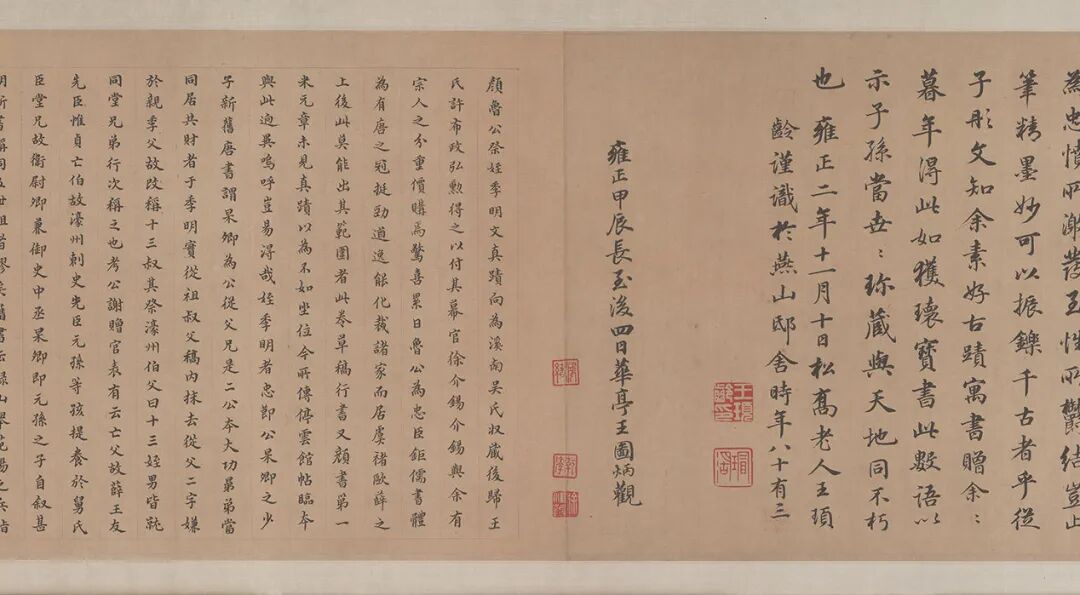 為忠憤所激發至性所鬱結豈止
筆精墨妙可以振鑠千古者乎從
子彤文知余素好古蹟寓書贈余〻
暮年得此如獲瓌寶書此數語以
示子孫當世〻珍藏與天地同不朽
也雍正二年十一月十日松喬老人王頊
齡謹識於燕山邸舍時年八十有三
雍正甲辰長至後四日華亭王圖炳觀
顏魯公祭姪季明文真蹟向為溪南吳氏收藏後歸王
氏許布政弘勳得之以付其幕官徐介錫介錫與余有
宗人之分重價購焉驚喜累日魯公為忠臣鉅儒書體
為有唐之冠挺勁遒逸能化裁諸家而居虞褚歐薛之
上後此莫能出其範圍者此卷草稿行書又顏書第一
米元章未見真蹟以為不如坐位今所傳停雲館帖臨本
與此迥異嗚呼豈易得哉姪季明者忠節公杲卿之少
子新舊唐書謂杲卿為公從父兄是二公本大功昆弟當
同居共財者于季明實從祖叔父稿內抹去從父二字嫌
於親季父故跂稱十三叔其祭濠州伯父曰十三姪男皆就
同堂兄弟行次稱之也考公謝贈官表有云亡父故薛王友
先臣惟貞亡伯故濠州刺史先臣元孫等孩提養於舅氏
臣堂兄故衛尉卿兼御史中丞杲卿即元孫之子自叙甚